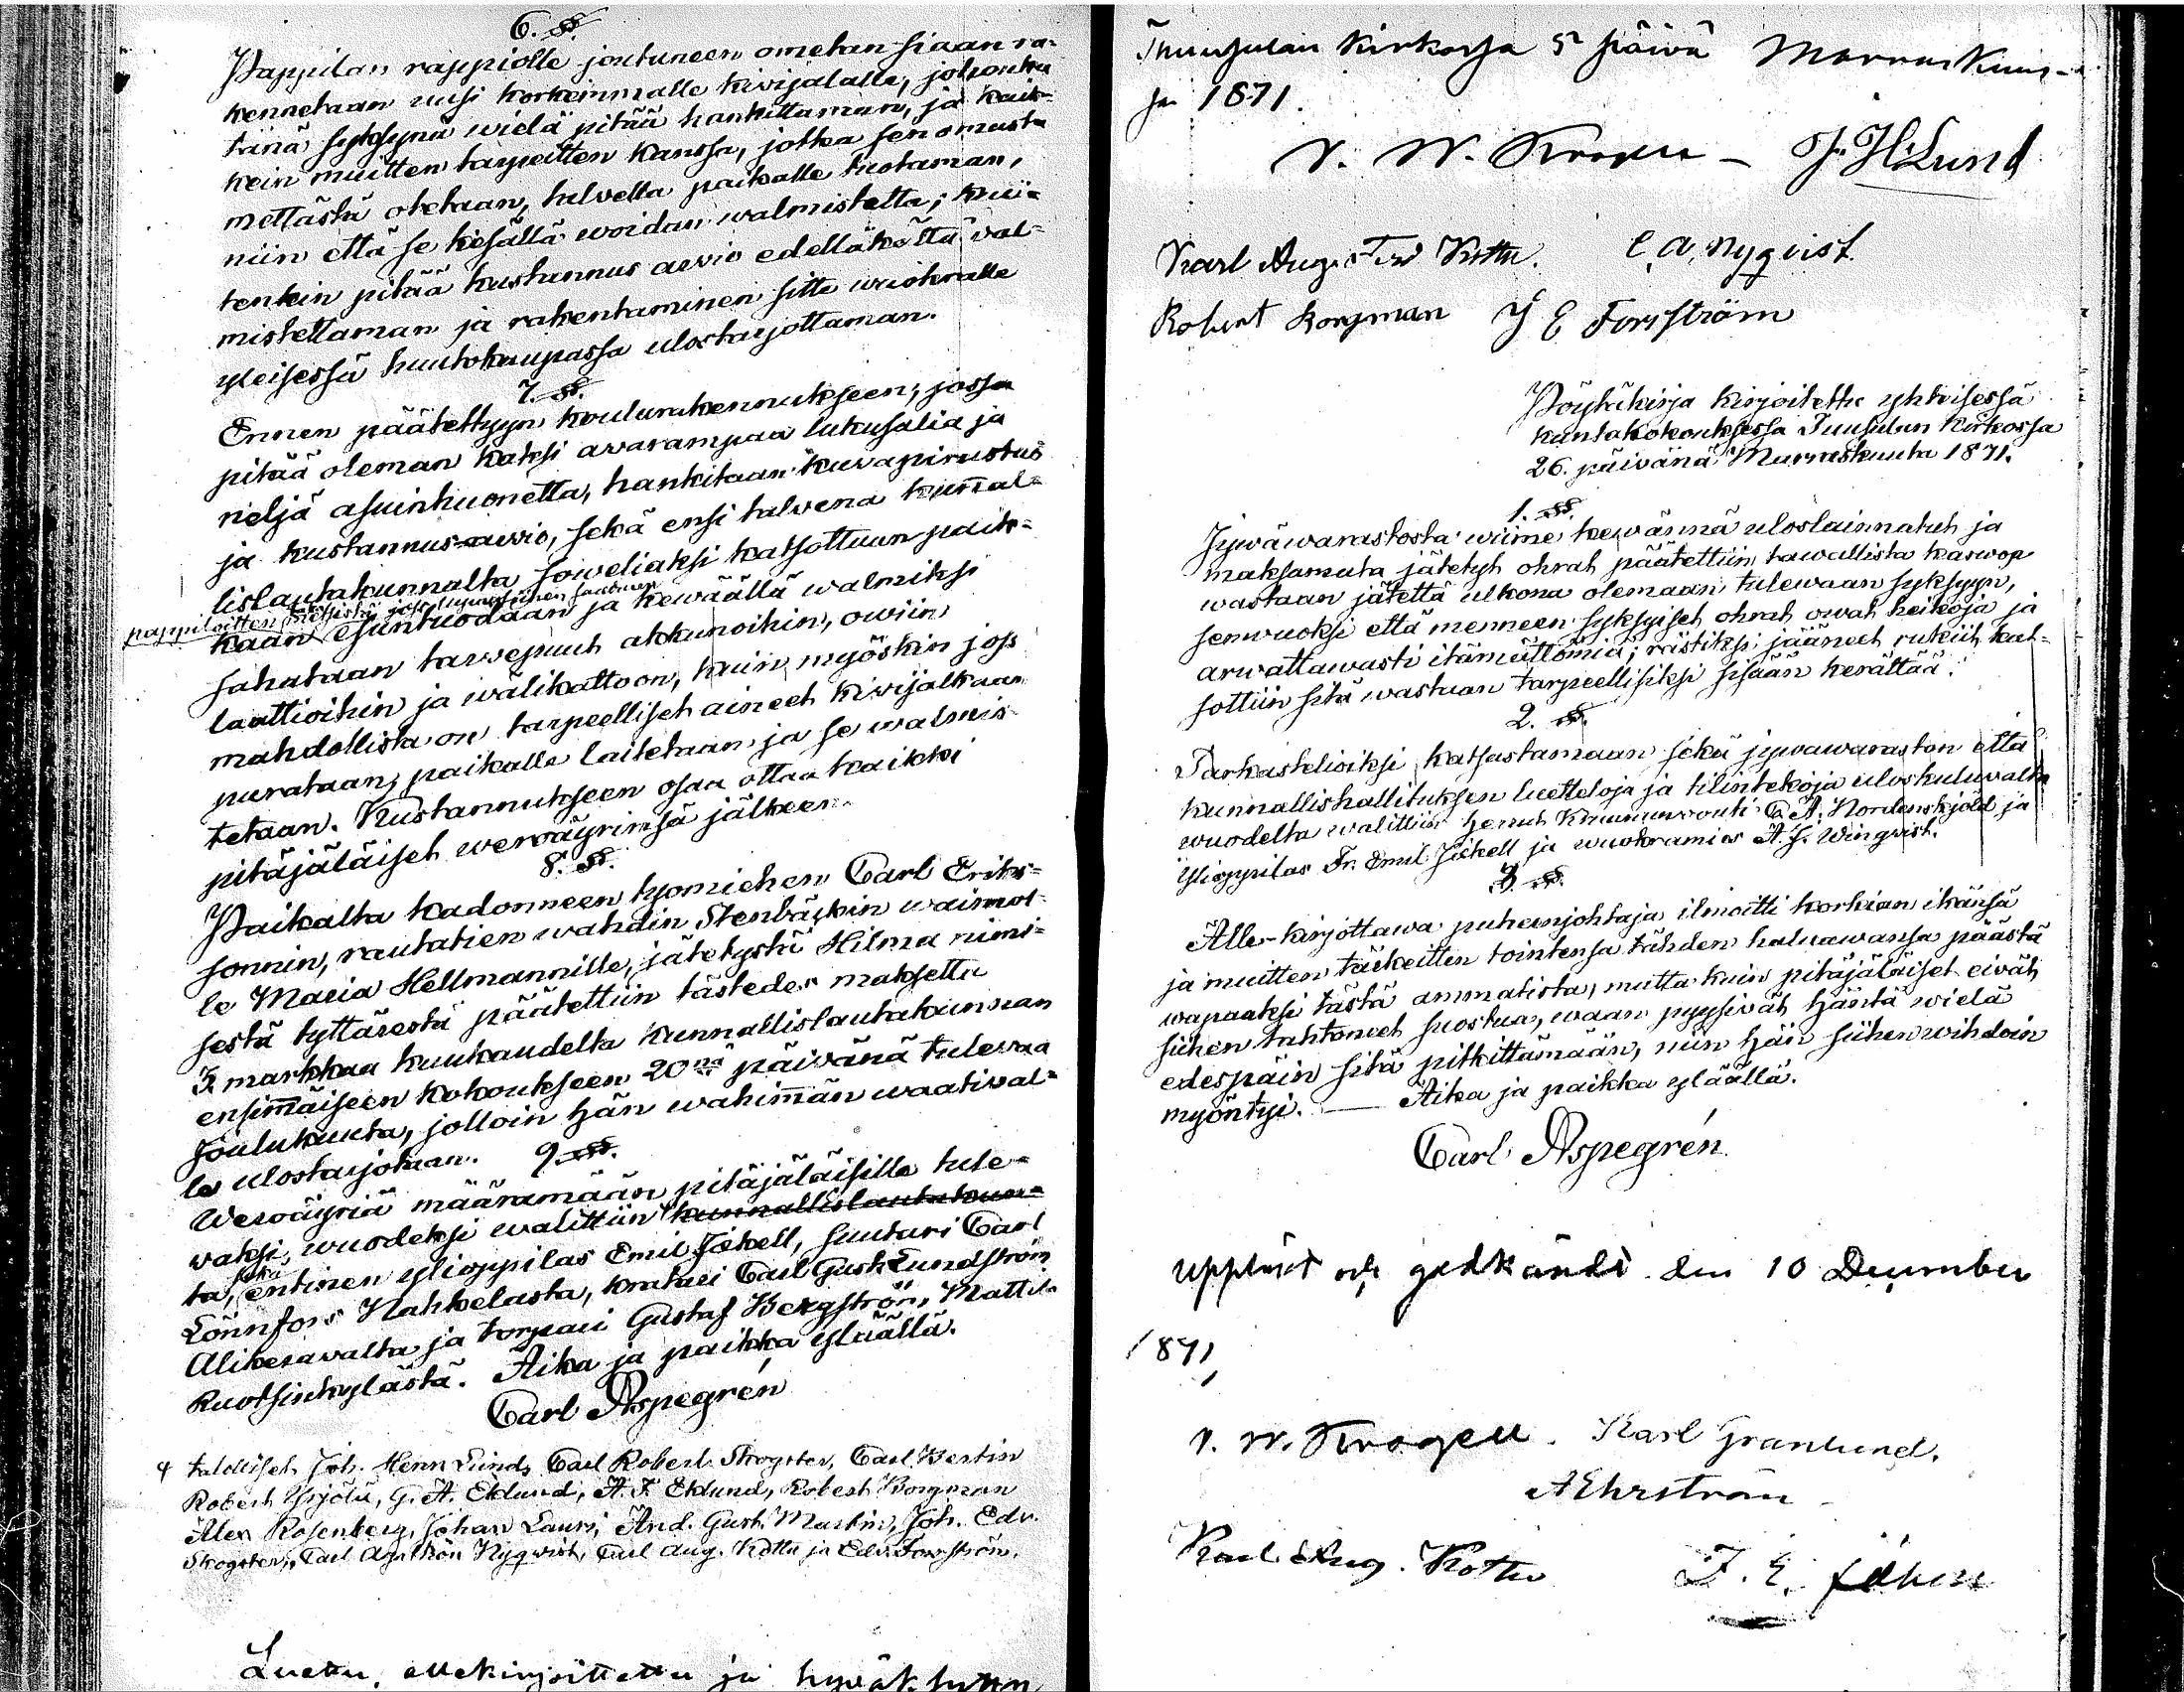 6. §.
Pappilan rappiolle joutuneen ometan siaan ra-
kennetaan uusi korkeimmalle kivijalalle, johonka
tänä syksynä wielä pitää hankittaman, ja kaik-
kein muitten tarpeitten kanssa, jotka sen omasta
mettästä otetaan, talvella paikalle tuotaman,
niin että se kesällä woidan walmistetta; kui-
tenkin pitää kustannus arvio edelläkättä val-
mistettaman ja rakentaminen sitte wuokralle
yleisessä huutokaupassa ulostarjottaman.
7. §.
Ennen päätettyyn koulurakennukseen, jossa
pitää oleman kaksi awarampaa lukusalia ja
neljä asuinhuonetta, hankitaan kuvapirustus
ja kustannus-arvio, sekä ensi talvena kunnal-
lislautakunnalta soweliaksi katsottuun paik-
pappiloitten metsistä jos lupa siihen saadaan
kaan esiintuodaan ja kewäällä walmiksi
sahataan tarwepuut akkunoihin, owiin,
laattioihin ja wälikattoon, kuin myöskin jos
mahdollista on tarpeelliset aineet kivijalkaan
purataan, paikalle laitetaan ja se walmis-
tetaan. Kustannukseen osaa ottaa kaikki
pitäjäläiset weroäyrinsä jälkeen.
8. §.
Paikalta kadonneen työmiehen Carl Eriks-
sonnin, rautatien wahdin Stenbäckin waimol-
le Maria Hellmannille, jätetystä Hilma nimi-
sestä tyttärestä päätettiin tästedes maksetta
3 markkaa kuukaudelta kunnallislautakunnan
ensimmäiseen kokoukseen 20nä päivänä tulevaa
Joulukuuta, jolloin hän wahimmän waatival-
le ulostarjotaan.
9. §.
Weroäyriä määrämään pitäjäläisille tule-
vaksi wuodeksi walittiin kunnallislautakun-
ta, sekä entinen ylioppilas Emil Jökell, suutari Carl
Lönnfors Nahkelasta, kratari Carl Gust Lundström
Alikeravalta ja torpari Gustaf Bergström, Mattila
Ruotsinkylästä. Aika ja paikka ylläällä.
Carl Aspegrén
taldlliset Joh. Henr Lund, Carl Robert Skogster, Carl Bertin
Robert Yrjölä, G. A. Eklund, A. F. Eklund, Robert Borgman
Alex Rosenberg, Johan Lauri, And. Gust. Martin, Joh. Edv.
Skogster, Carl Nyqvist, Carl Aug. Kottu ja Edv. Forsström.
Luettu, allekirjoitettu ja hyväksyttu
Tuusulan kirkossa 5 päivä Marraskuus-
sa 1871.
N. W. Krogell - J. H. Lund
Karl August Kottu. C. A. Nyqvist.
Robert Borgman J E Forsström
Pöytäkirja kirjoitettu yhteisessä
kuntakokouksessa Tuusulan Kirkossa
26. päivänä Marraskuuta 1871.
1. §.
Jywäwarastosta wiime kewännä uloslainnatut ja
maksamata jätetyt ohrat päätettiin tawallista kaswop
wastaan jätettä ulkona olemaan tulewaan syksyyn,
senwuoksi että menneen syksyiset ohrat owat heikoja ja
arwattawasti itämättömiä; rästiksi jääneet rukiit kat-
sottiin sitä wastaan tarpeellisiksi sisään kerättää.
2. §.
Tarkastelioiksi katsastamaan sekä jywawaraston että
kunnallishallituksen luetteloja ja tilintekoja uloskuluvalta
wuodelta walittiin Herrat Kruununvouti C. A. Nordenskjöld ja
Ylioppilas Fr. Emil Jökell ja wuokramies A. J. Winqvist.
3. §.
Alle-kirjottawa puheenjohtaja ilmoitti korkian ikänsä
ja muitten tärkeitten tointensa tähden haluawansa päästä
wapaaksi tästä ammatista, mutta kuin pitäjäläiset eivät
siihen tahtoneet suostua, waan pyysivät häntä wielä
edespäin sitä pitkittämään, niin hän siihen wihdoin
myöntyi. — Aika ja paikka ylläällä.
Carl Aspegrén
Uppläst och godkändt den 10 December
1871,
N. W. Krogell. Karl Granlund.
A Ehrström
Karl Aug. Kottu F. E. Jökell